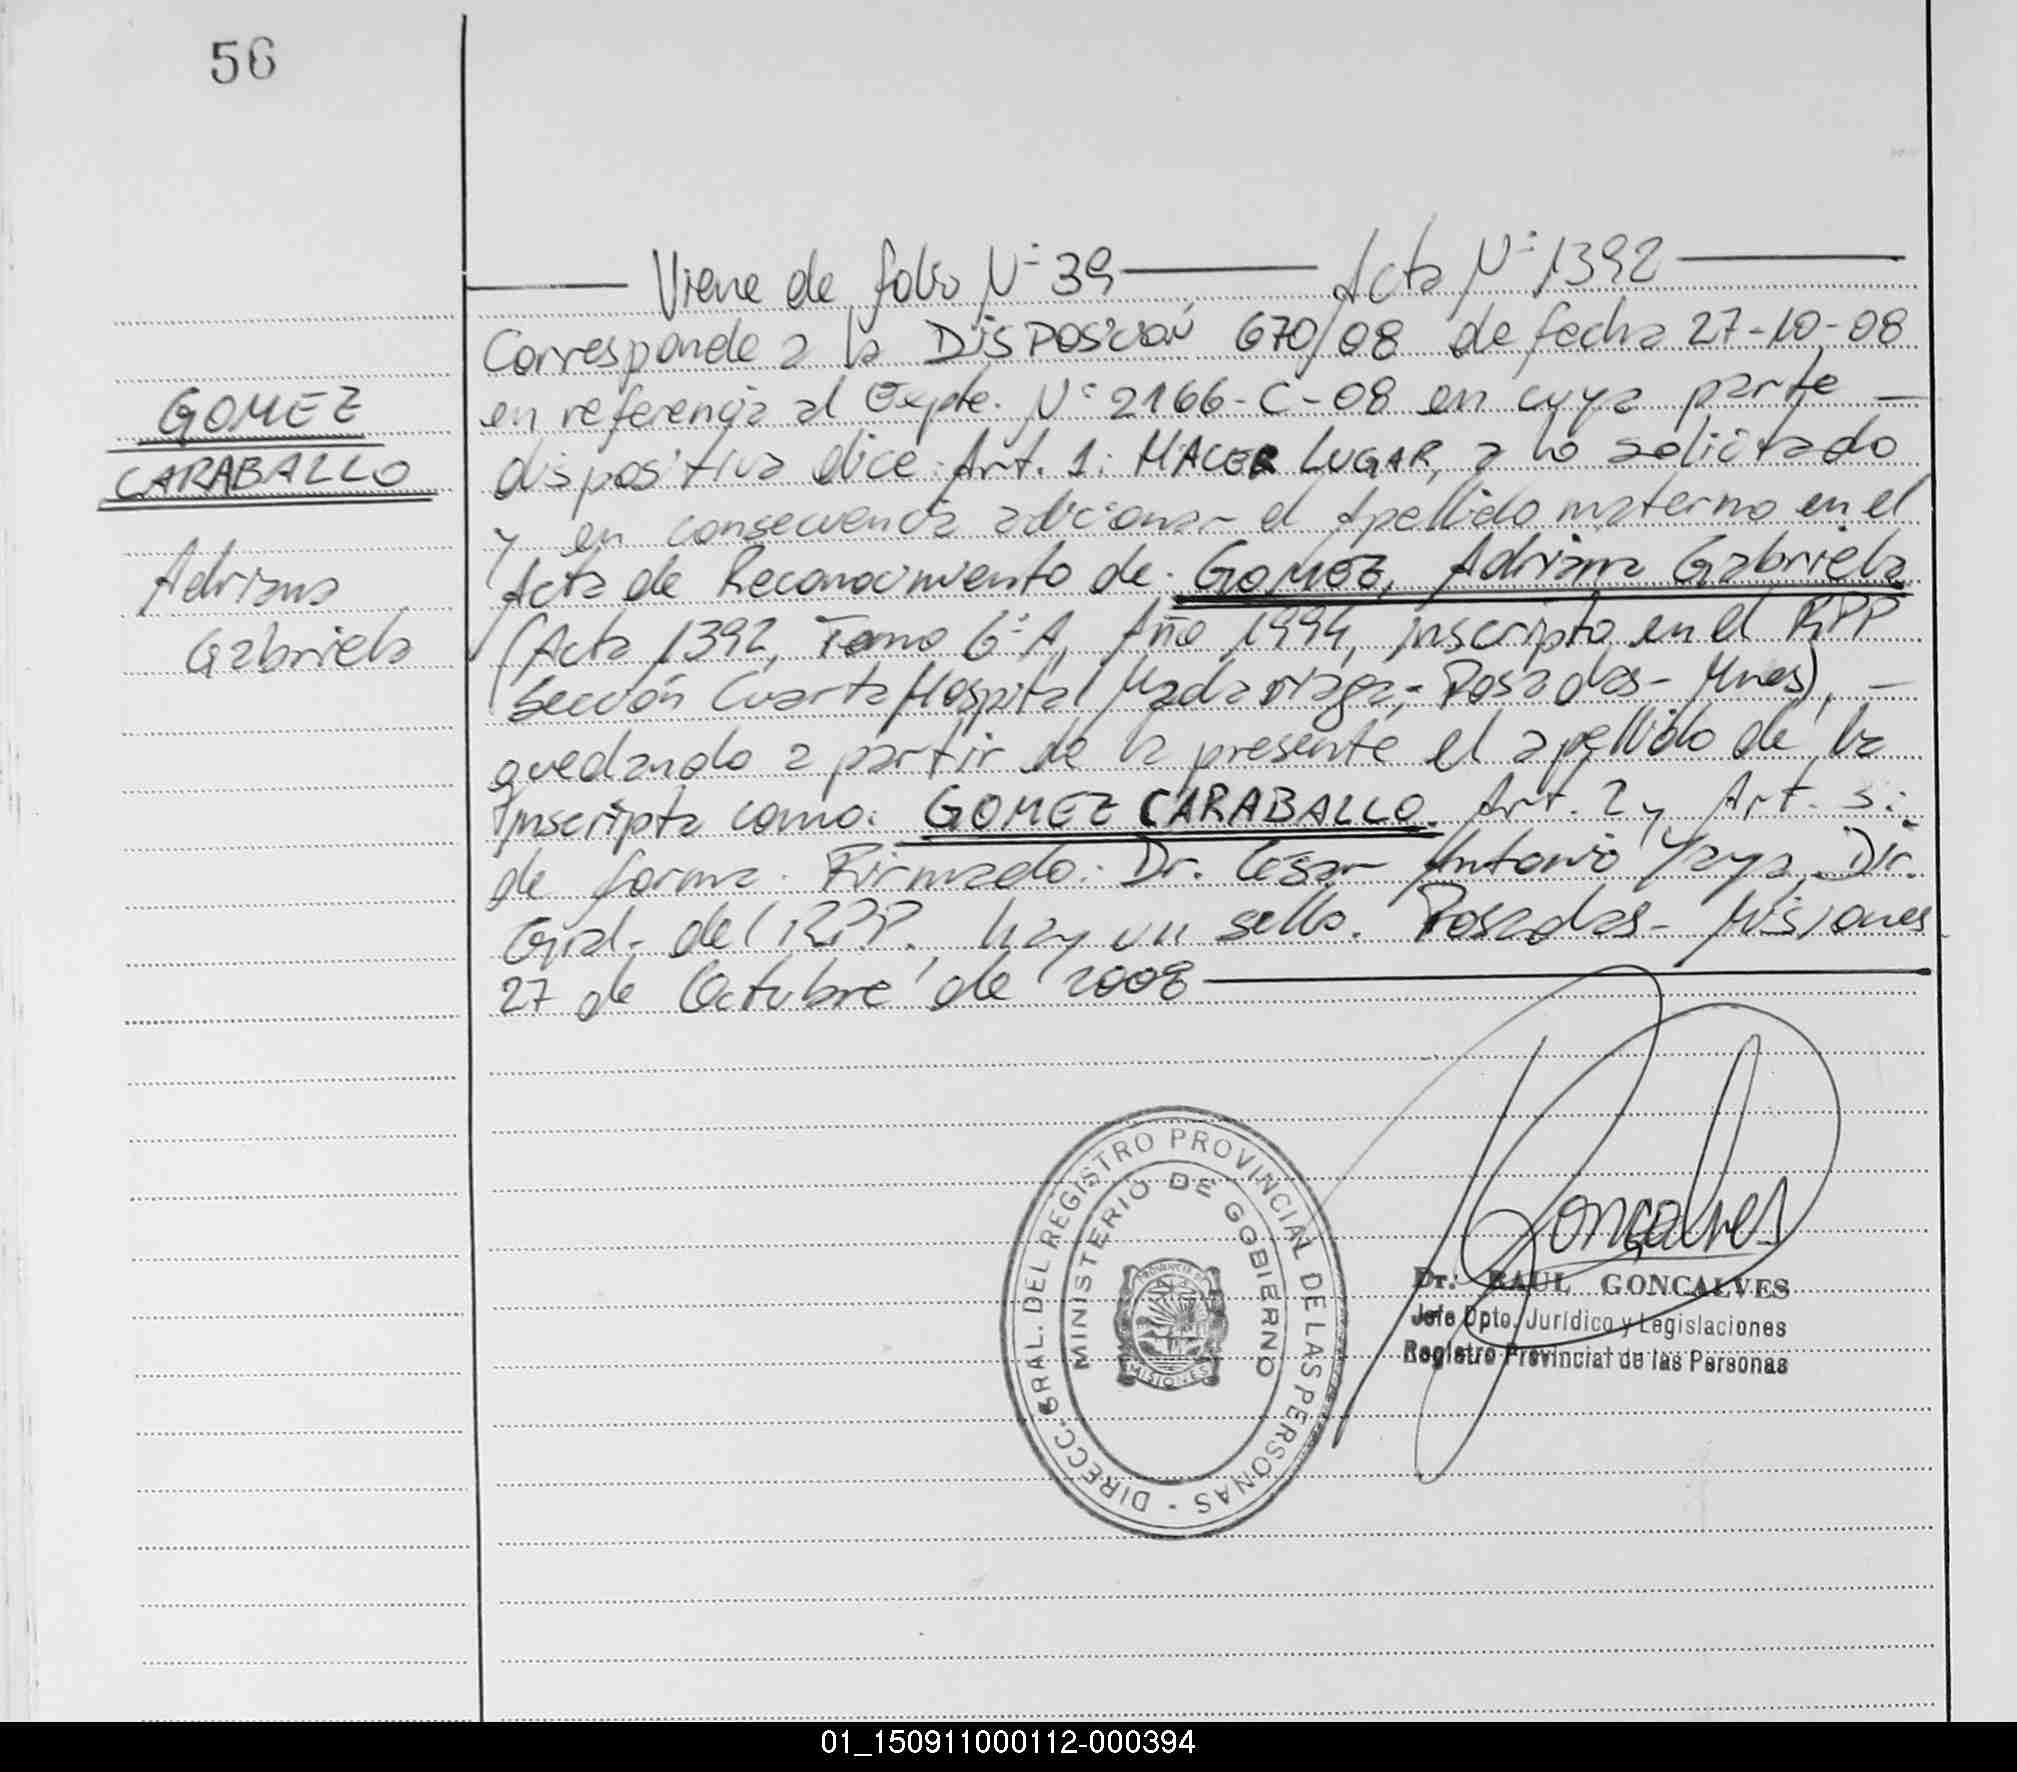 56
Viene de folio N° 39 Acta N° 1392
Corresponde a la DISPOSICIÓN 670/08 de fecha 27-10-08
en referencia al Expte. N° 2166-C-08 en cuya parte
dispositiva dice: Art. 1: HACER LUGAR, a lo solicitado
y en consecuencia adicionar el Apellido materno en el
Acta de Reconocimiento de: GOMEZ, Adriana Gabriela
(Acta 1392, Tomo 6° A, Año 1994, inscripta en el RPP
Sección Cuarta Hospital Madariaga,- Posadas- Mnes),
quedando a partir de la presente el apellido de la
Inscripta como: GOMEZ CARABALLO. Art. 2 y Art. 3:
de forma. Firmado: Dr. César Antonio Yaya, Dir.
Gral. del RPP, hay un sello. Posadas- Misiones
27 de Octubre de 2008
GOMEZ
CARABALLO
Adriana
Gabriela
DIRECC. GRAL. DEL REGISTRO PROVINCIAL DE LAS PERSONAS -
MINISTERIO DE GOBIERNO
PROVINCIA DE
MISIONES
Goncalves
Dr. RAUL GONCALVES
Jefe Dpto. Jurídico y Legislaciones
Registro Provincial de las Personas
01_150911000112-000394